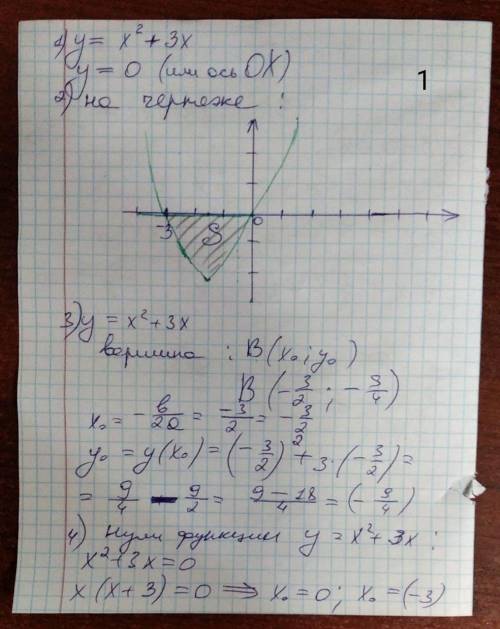 1) y = x² + 3x
y = 0 (или ось OX)
1
2) на чертеже :
-3 S 0
3) y = x² + 3x
вершина : B(x₀; y₀)
B(-3/2 ; -9/4)
x₀ = -b/2a = -3/2 = -3/2
y₀ = y(x₀) = (-3/2)² + 3·(-3/2) =
= 9/4 - 9/2 = 9-18/4 = (-9/4)
4) нули функции y = x² + 3x :
x² + 3x = 0
x(x+3) = 0 ⟹ x₀ = 0; x₀ = (-3)